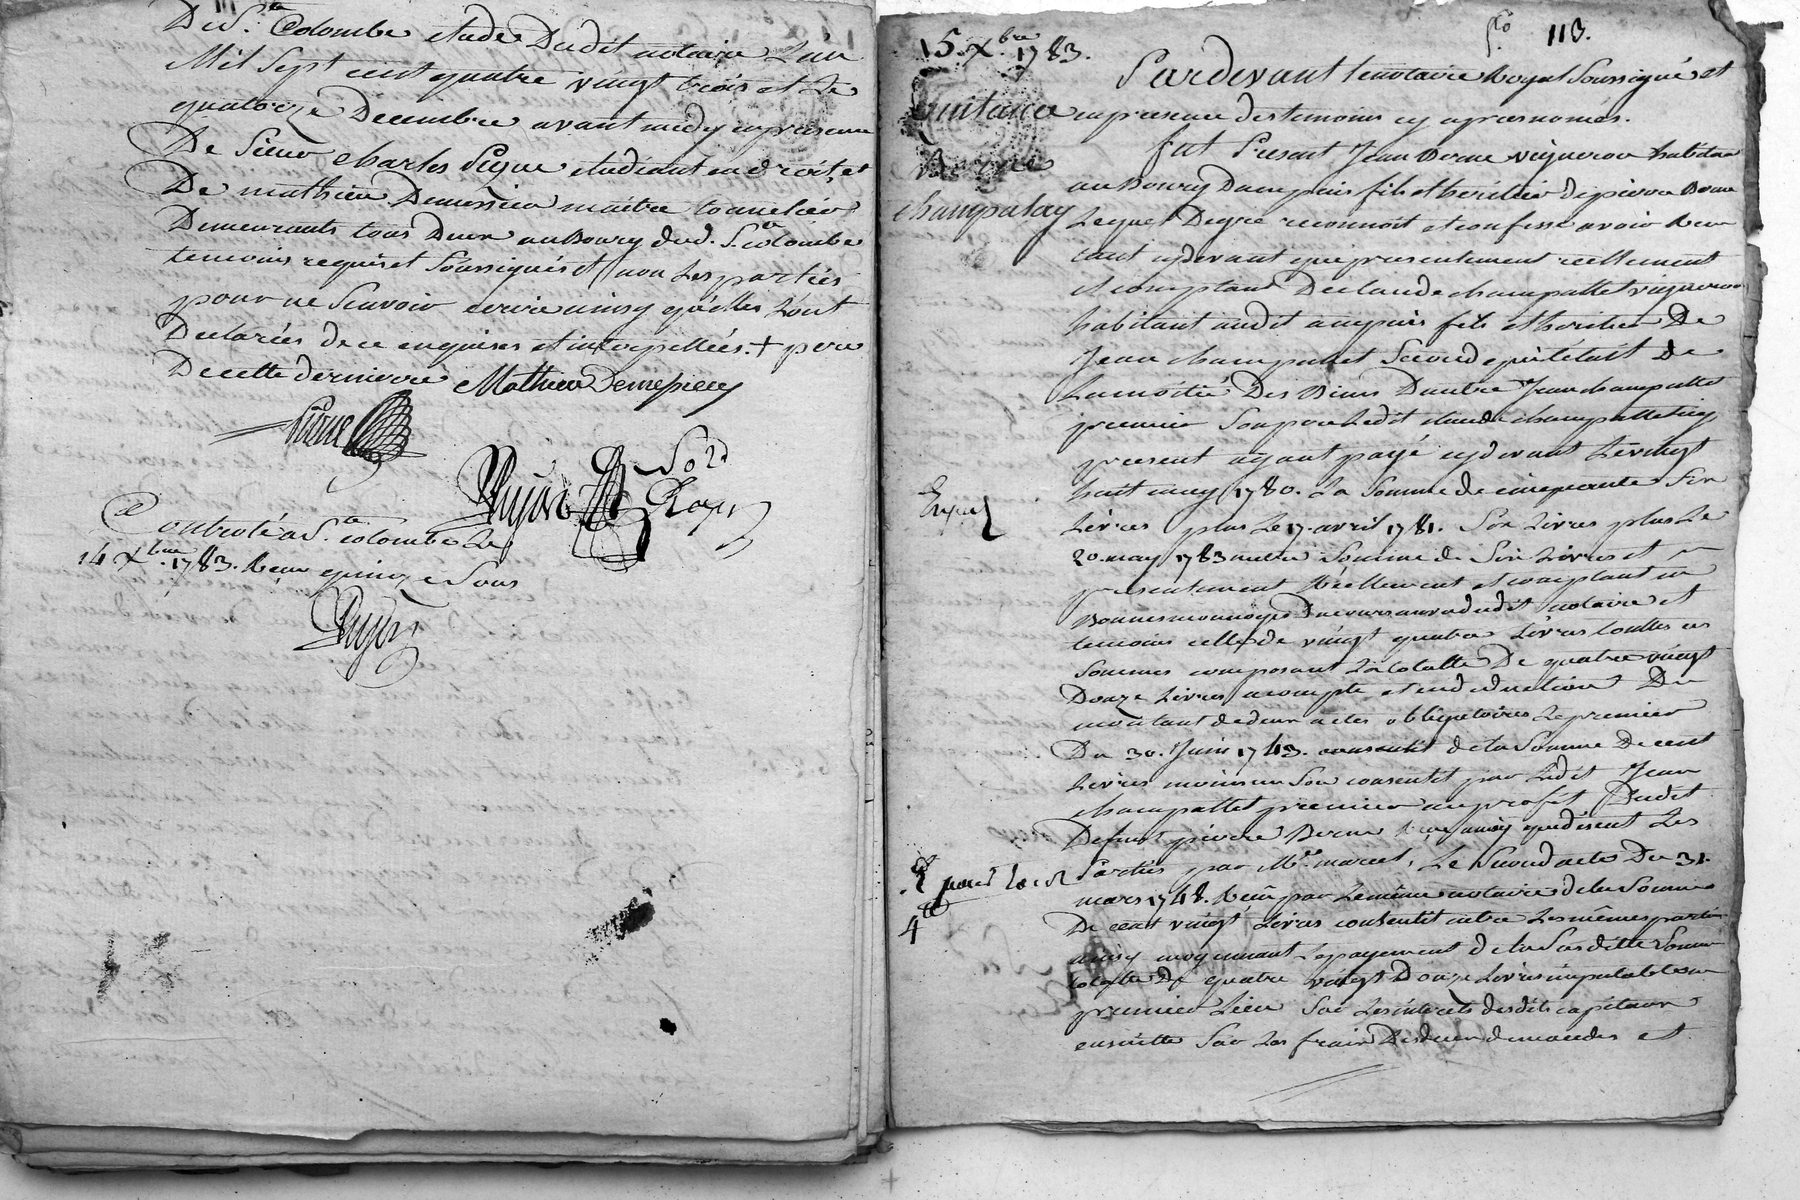 De Ste Colombe etude Dudit notaire L'an
Mil Sept cent quatre vingt trois et Le
quatorze Decembre avant midy en presence
De Sieur Charles Pigne etudiant en droit, et
De mathieu Demepieu maitre tonnelier
Demeurants tous Deux au Bourg dud. Ste colombe
temoins requis et Soussignés et non Les parties
pour ne Scavoir ecrire ainsy qu'elles L'ont
Declarées de ce enquises et interpellées. + pere
De cette derniere Mathieu Demepieu
Pigne
Controlé a Ste. colombe Le
14 Xbre. 1783. Reçu quinze Sous
fo 113.
15. Xbre. 1783.
Pardevant Le notaire Royal Soussigné et
quitance en presence des temoins cy apres només.
fut Present Jean Berne vigneron habitant
au Bourg Dampuis fils et heritier de pierre Berne
champalay Lequel De gré reconnoit et confesse avoir Reçu
tant cydevant que presentement réellement
et comptant De claude champallet vigneron
habitant audit ampuis fils et heritier De
Jean champallet Second qui l'etait de
La moitié Des Biens D'autre Jean champallet
premier Son pere Ledit claude champallet icy
present ayant payé cydevant Le vingt
huit may 1780. La Somme de cinquante Six
Livres plus Le 17. avril 1781. Six Livres plus Le
20. may 1783 autre Somme de Six Livres et
presentement Réellement et comptant en
Bonnes monnoyes Du cours au vu dudit notaire et
temoins celle de vingt quatre Livres touttes ces
Sommes composant La totalle De quatre vingt
Douze Livres a compte et en deduction Du
montant de deux actes obligatoires Le premier
Du 30. Juin 1743. de la Somme De cent
Livres moins un Sou consentit par Ledit Jean
champallet premier au profit Dudit
Defunt pierre Berne Reçu ainsy que disent Les
Parties par Me. marcel, Le Second acte Du 31.
mars 1748. Reçu par Le même notaire de la Somme
De cent vingt Livres consentit entre Les mêmes parties
ainsy moyennant Le payement de la Susditte Somme
totalle De quatre vingt Douze Livres imputable en
premier Lieu Sur Les interets desdits capitaux
ensuitte Sur Les fraix Des deux demandes et